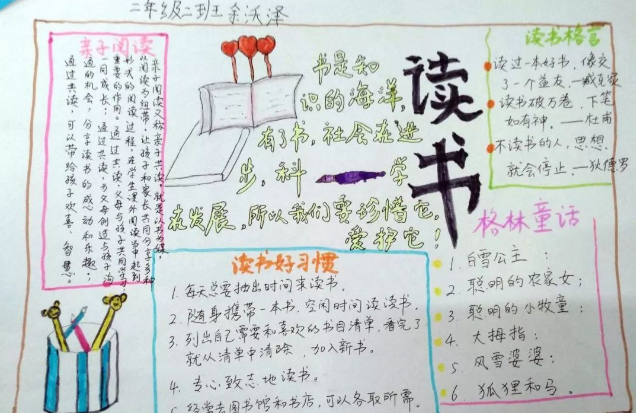 二年级二班 余沃泽
亲子阅读
亲子阅读又称亲子共读,就是以书为媒,
以阅读为纽带,让孩子和家长共同分享多种
形式的阅读过程。在学生课外阅读当中起到
重要的作用。通过共读,父母与孩子共同学习,
一同成长;通过共读,为父母创造与孩子沟
通的机会,分享读书的感动和乐趣;
通过共读,可以带给孩子欢喜、智慧。
书是知
识的海洋,
有了书,社会在进
步,科学
在发展,所以我们要珍惜它,
爱护它!
读书
读书格言
读过一本好书,像交
了一个益友。—臧克家
读书破万卷,下笔
如有神。—杜甫
不读书的人,思想
就会停止。—狄德罗
读书好习惯
1. 每天总要抽出时间来读书。
2. 随身携带一本书,空闲时间读读书。
3. 列出自己需要和喜欢的书目清单,看完了
就从清单中清除,加入新书。
4. 专心致志地读书。
经常去图书馆和书店,可以各取所需。
格林童话
1. 白雪公主;
2. 聪明的农家女;
3. 聪明的小牧童;
4. 大拇指;
5. 风雪婆婆;
6. 狐狸和马。